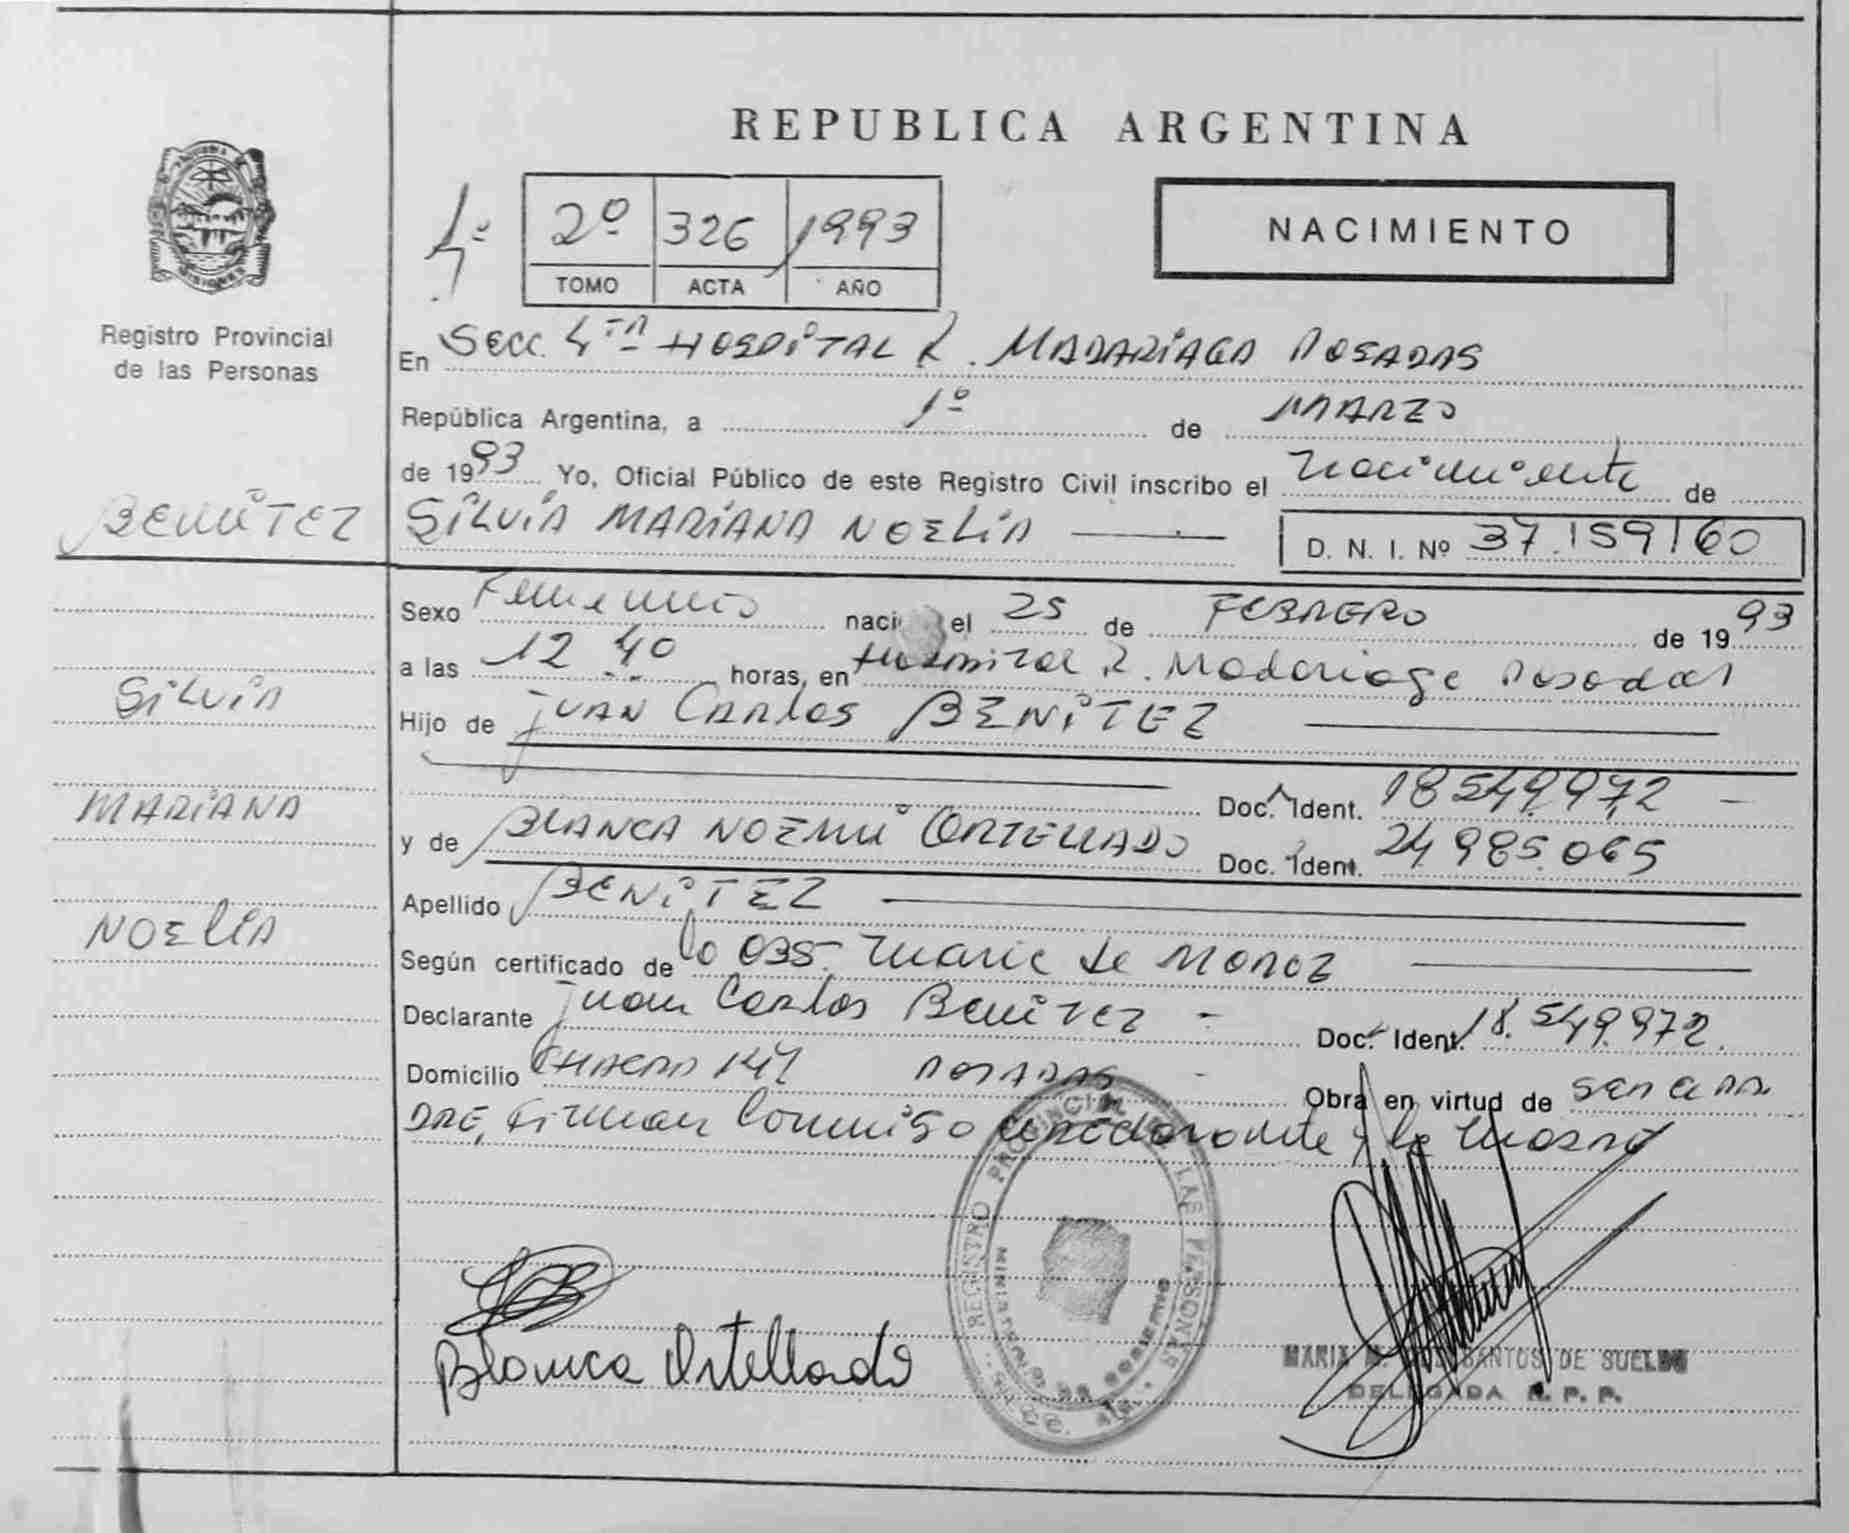 REPUBLICA ARGENTINA
NACIMIENTO
4º 2º 326 1993
TOMO ACTA AÑO
Registro Provincial
de las Personas
En Secc. 4TA HOSPITAL R. MADARIAGA POSADAS
República Argentina, a 1º de MARZO
de 1993 Yo, Oficial Público de este Registro Civil inscribo el nacimiento de
BENITEZ SILVIA MARIANA NOELIA D. N. I. Nº 37.159160
Sexo Femenino naci el 25 de FEBRERO de 1993
a las 12 40 horas, en Hospital R. Madariaga Posadas
SILVIA
Hijo de JUAN CARLOS BENITEZ
Doc. Ident. 18.549.972 -
MARIANA
y de BLANCA NOEMI ORTELLADO Doc. Ident. 24.985.065
Apellido BENITEZ
NOELIA
Según certificado de la OBS. Marie de
Declarante Juan Carlos Benitez - Doc. Ident. 18.549.972.
Domicilio CHACRA 147 POSADAS - Obra en virtud de SER EL PA
DRE, Firman conmigo el declarante y la madre
REGISTRO PROVINCIAL DE LAS PERSONAS
MINISTERIO DE GOBIERNO
Blanca Ortellado
MARIA SANTOS DE SUELDO
DELEGADA R. P. P.